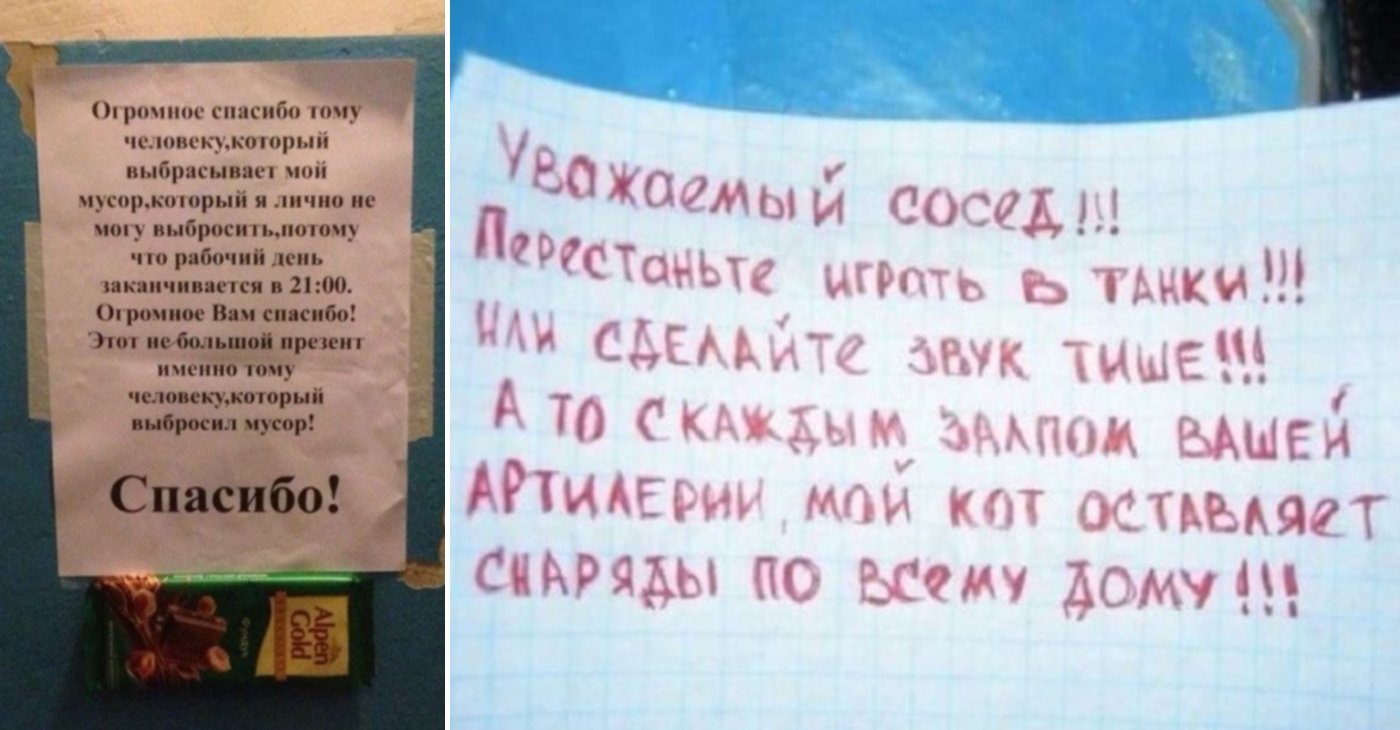 Огромное спасибо тому
человеку,который
выбрасывает мой
мусор,который я лично не
могу выбросить,потому
что рабочий день
заканчивается в 21:00.
Огромное Вам спасибо!
Этот не-большой презент
именно тому
человеку,который
выбросил мусор!
Спасибо!
Alpen
Gold
Фундук
Уважаемый сосед!!!
Перестаньте играть в танки!!!
Или сделайте звук тише!!!
А то с каждым залпом вашей
артилерии, мой кот оставляет
снаряды по всему дому!!!